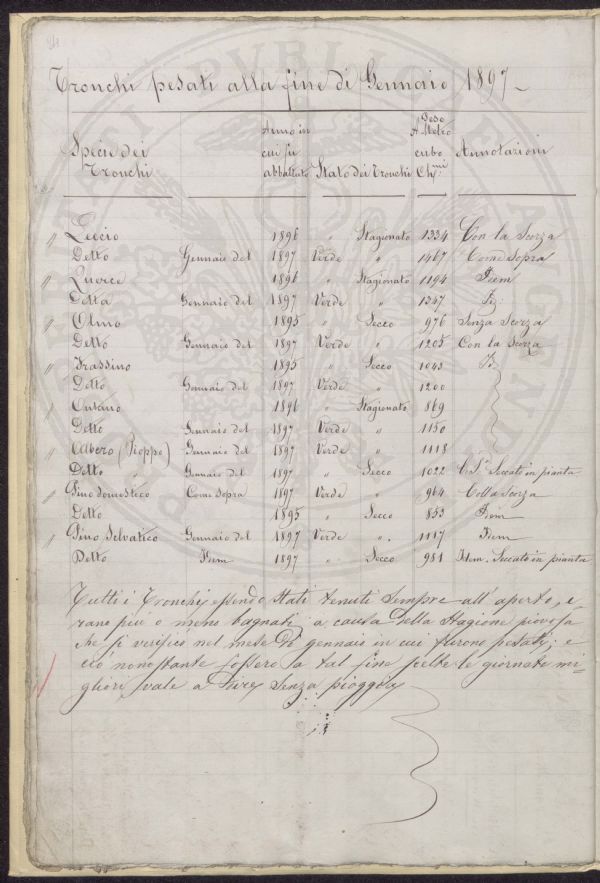 Tronchi pesati alla fine di Gennaio 1897
Specie dei Tronchi Anno in cui fu abbattuto Stato dei Tronchi Peso A Metro cubo Ch.mi Annotazioni
" Leccio 1896 " Stagionato 1334 Con la Scorza
Detto Gennaio del 1897 Verde " 1467 Come Sopra
" Querce 1896 " Stagionato 1194 Idem
Detta Gennaio del 1897 Verde " 1347 Id:
" Olmo 1895 " Secco 976 Senza Scorza
Detto Gennaio del 1897 Verde " 1205 Con la Scorza
" Frassino 1895 " Secco 1043 Id
Detto Gennaio del 1897 Verde " 1200
" Ontano 1896 " Stagionato 869
Detto Gennaio del 1897 Verde " 1150
" Albero (Pioppo) Gennaio del 1897 Verde " 1118
Detto " Gennaio del 1897 " Secco 1022 Seccato in pianta
" Pino domestico Come Sopra 1897 Verde " 964 Colla Scorza
Detto 1895 " Secco 853 Idem
" Pino Selvatico Gennaio del 1897 Verde " 1117 Idem
Detto Idem 1897 " Secco 981 Idem. Seccato in pianta
Tutti i Tronchi essendo Stati tenuti Sempre all'aperto, e-
rano più o meno bagnati, a causa della Stagione piovosa
che si verificò nel mese di gennaio in cui furono pesati; e
ciò nonostante fossero a tal fine scelte le giornate mi-
gliori, vale a dire, Senza pioggia